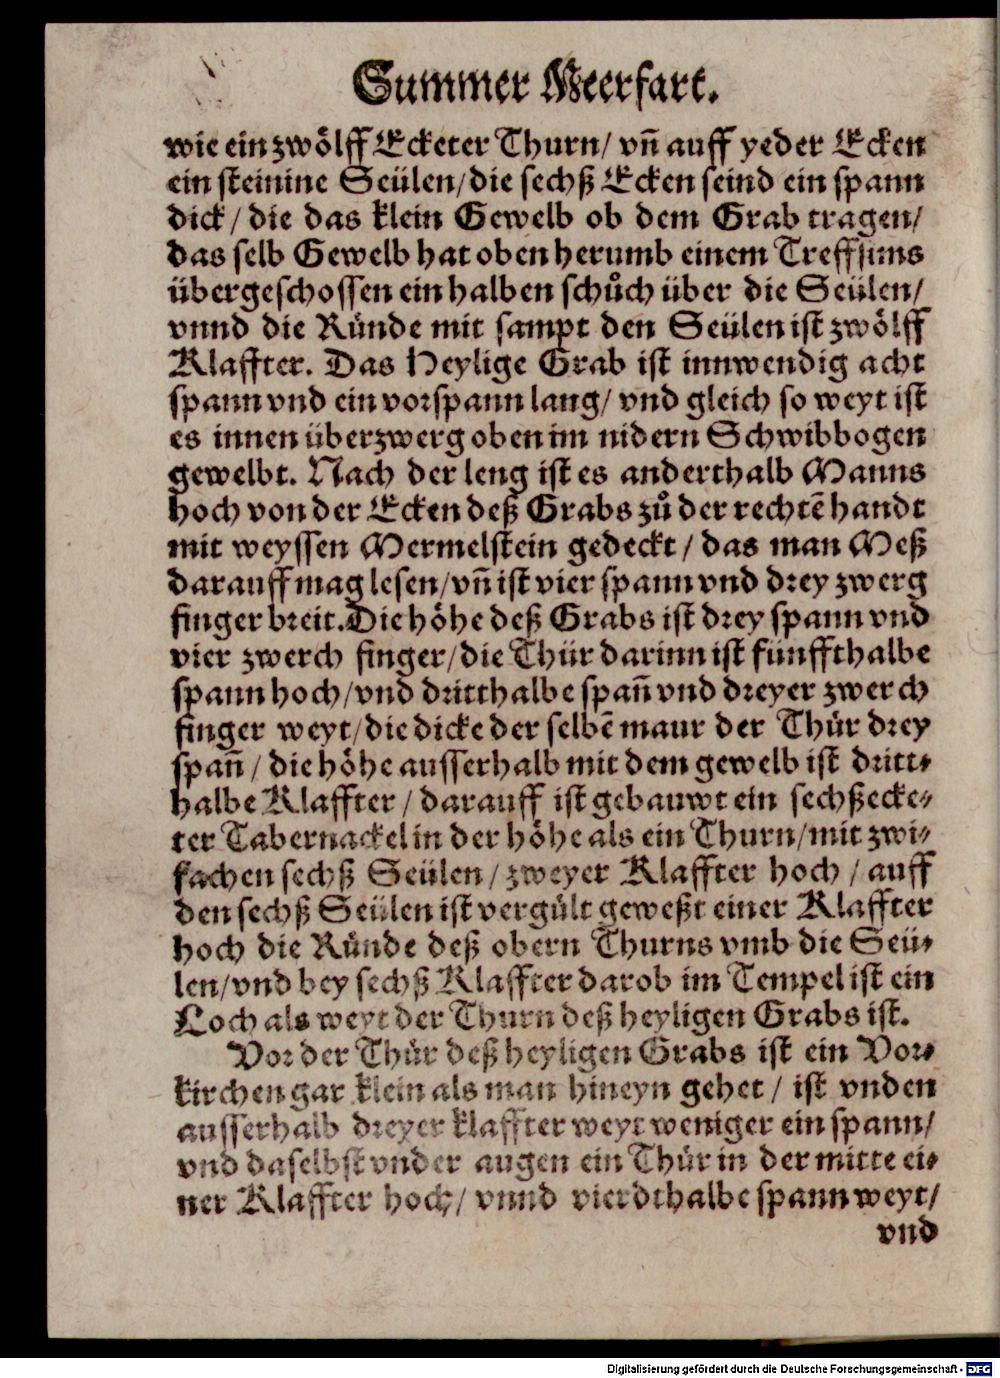 Summer Meerfart.
wie ein zwoͤlff Ecketer Thurn/ vn̄ auff yeder Ecken
ein steinine Seülen/ die sechß Ecken seind ein spann
dick/ die das klein Gewelb ob dem Grab tragen/
das selb Gewelb hat oben herumb einem Treffsims
übergeschossen ein halben schůch über die Seülen/
vnnd die Ründe mit sampt den Seülen ist zwoͤlff
Klaffter. Das Heylige Grab ist innwendig acht
spann vnd ein vorspann lang/ vnd gleich so weyt ist
es innen überzwerg oben im nidern Schwibbogen
gewelbt. Nach der leng ist es anderthalb Manns
hoch von der Ecken deß Grabs zů der rechtē handt
mit weyssen Mermelstein gedeckt/ das man Meß
darauff mag lesen/ vn̄ ist vier spann vnd drey zwerg
finger breit. Die hoͤhe deß Grabs ist drey spann vnd
vier zwerch finger/ die Thür darinn ist fünffthalbe
spann hoch/ vnd dritthalbe span̄ vnd dreyer zwerch
finger weyt/ die dicke der selbē maur der Thür drey
span̄/ die hoͤhe ausserhalb mit dem gewelb ist dritt⸗
halbe Klaffter/ darauff ist gebauwt ein sechßecke⸗
ter Tabernackel in der hoͤhe als ein Thurn/ mit zwi⸗
fachen sechß Seülen/ zweyer Klaffter hoch/ auff
den sechß Seülen ist vergült geweßt einer Klaffter
hoch die Ründe deß obern Thurns vmb die Seü⸗
len/ vnd bey sechß Klaffter darob im Tempel ist ein
Loch als weyt der Thurn deß heyligen Grabs ist.
Vor der Thür deß heyligen Grabs ist ein Vor⸗
kirchen gar klein als man hineyn gehet/ ist vnden
ausserhalb dreyer klaffter weyt weniger ein spann/
vnd daselbst vnder augen ein Thür in der mitte ei⸗
ner Klaffter hoch/ vnnd vierdthalbe spann weyt/
vnd
Digitalisierung gefördert durch die Deutsche Forschungsgemeinschaft - DFG